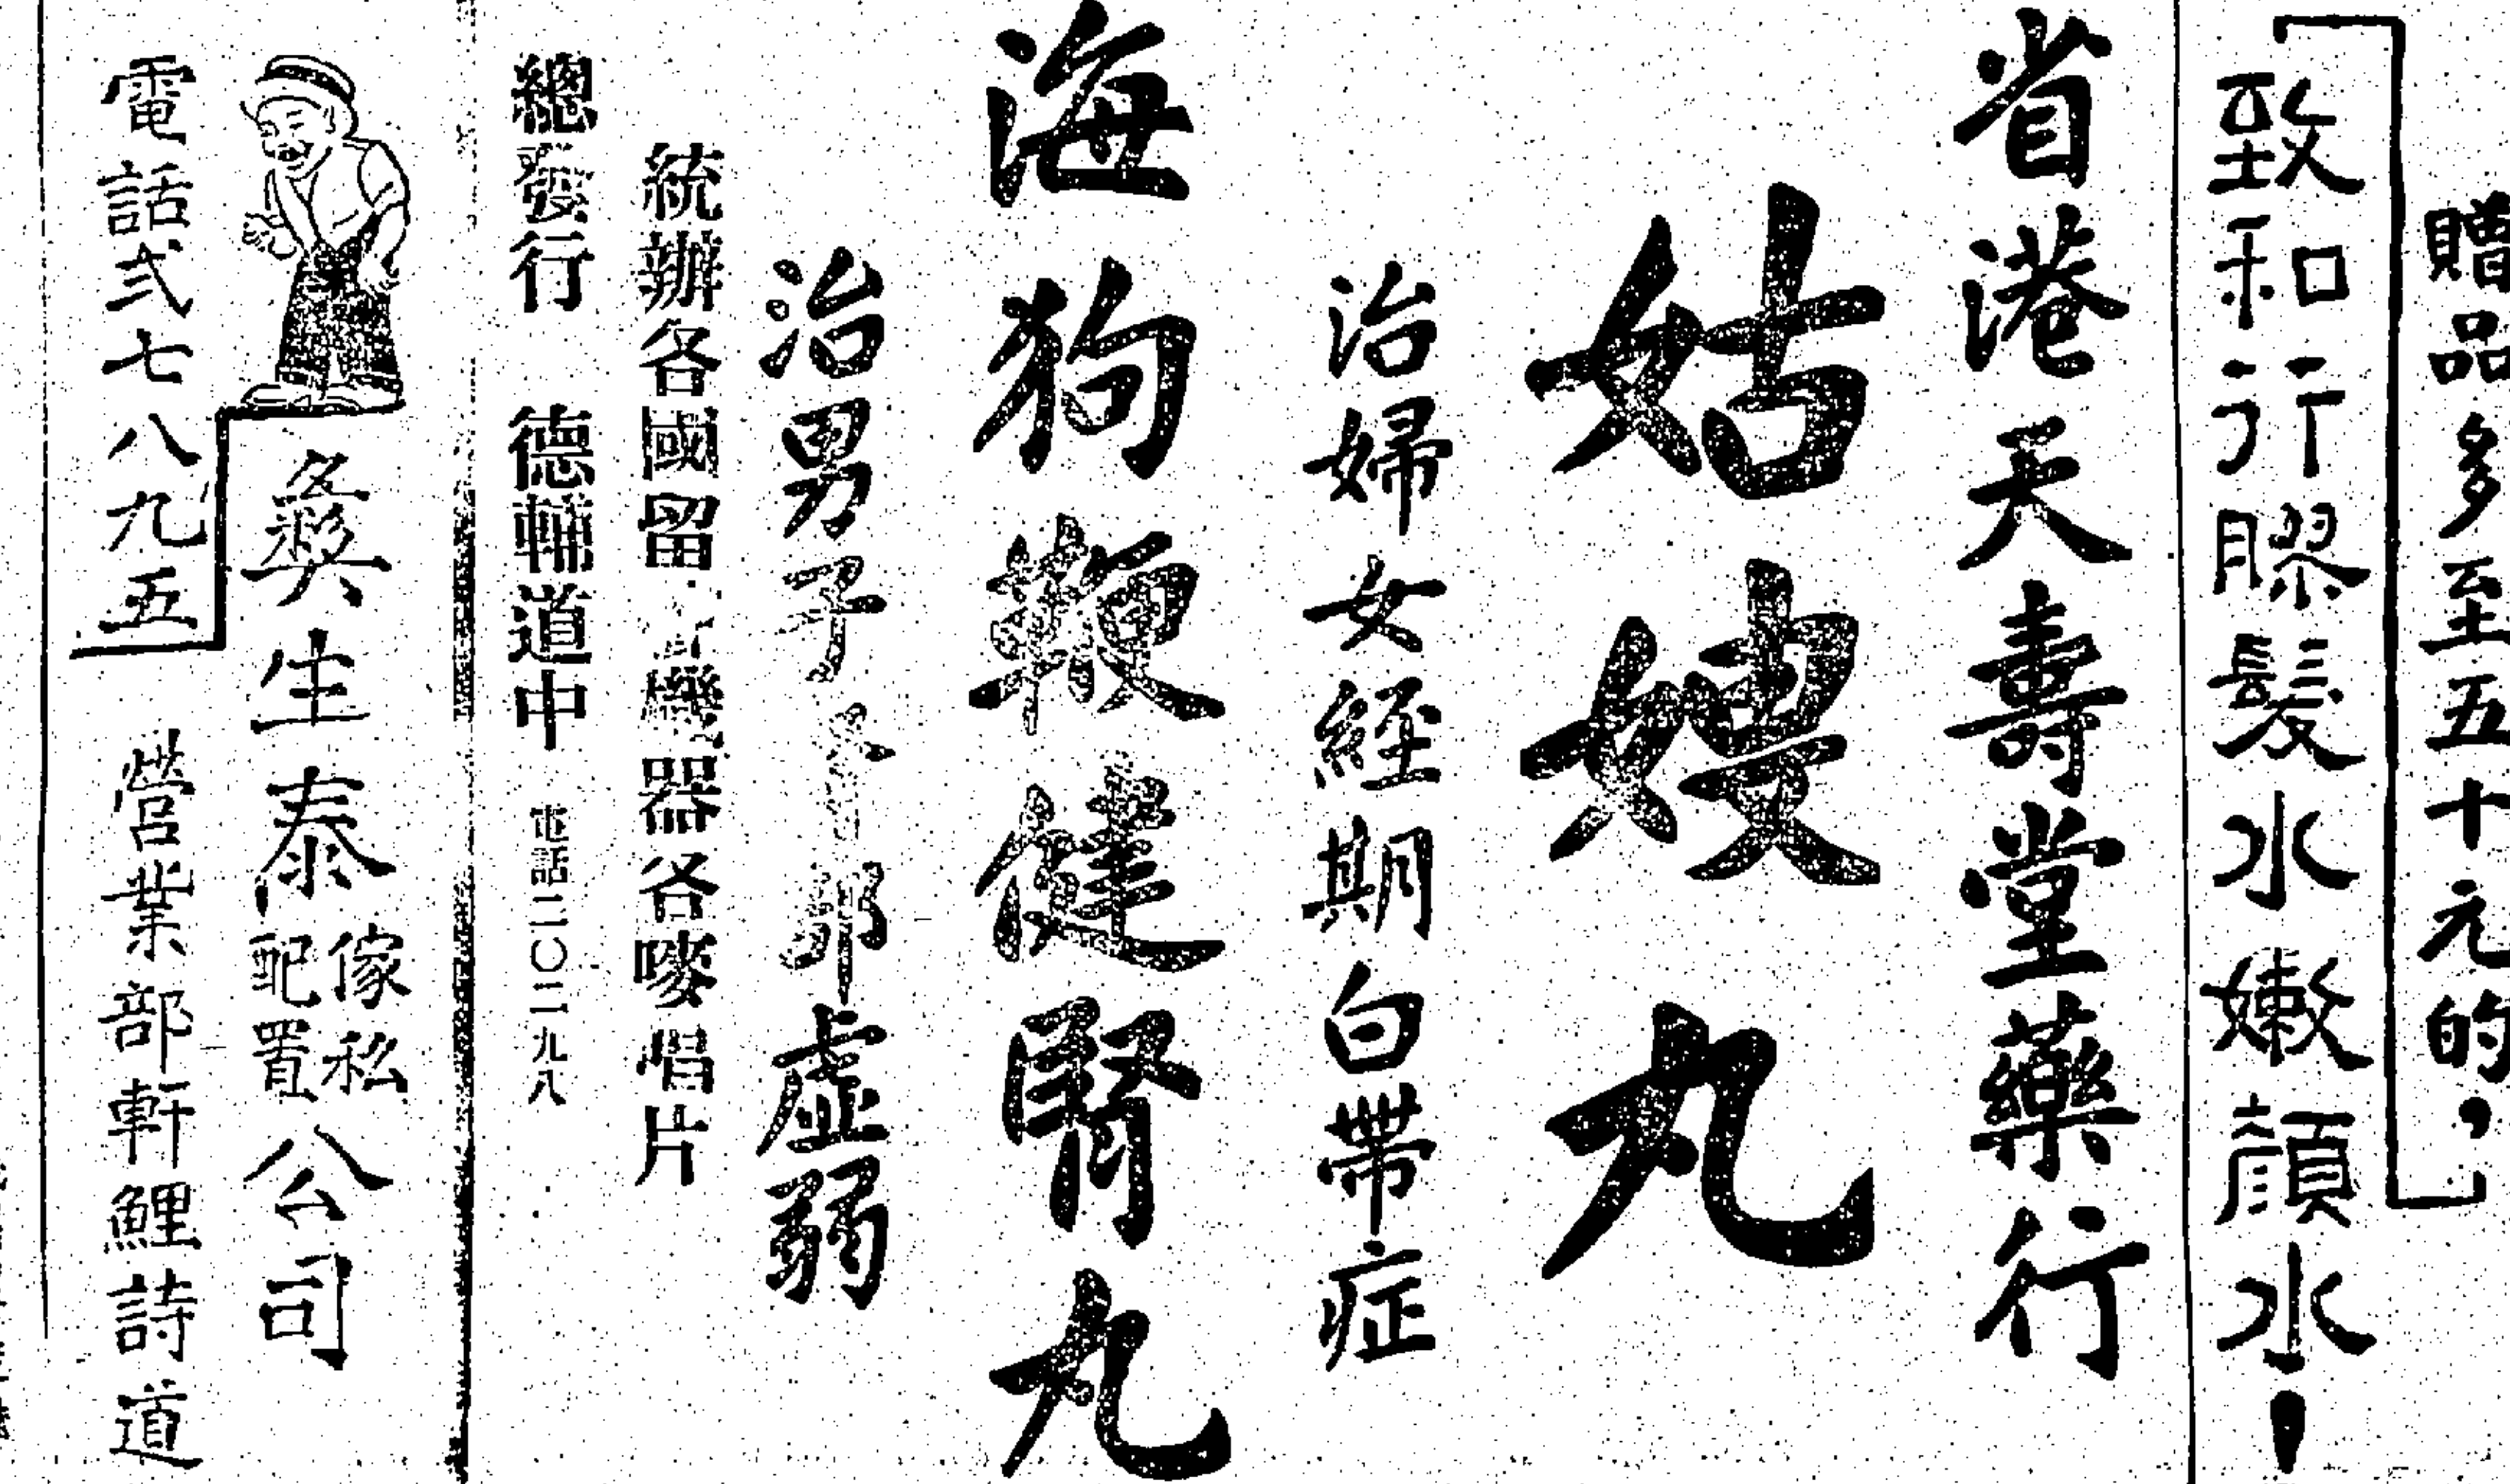 贈品多至五十元的，
致和行膠髮水嫩顏水！
省港天壽堂藥行
姑嫂丸
治婦女經期白帶症
海狗鞭健腎丸
治男子 部虛弱
統辦各國留 機器各嘜唱片
總發行 德輔道中 電話二〇二九八
彝生泰傢私配置公司
電話弍七八九五 營業部軒鯉詩道